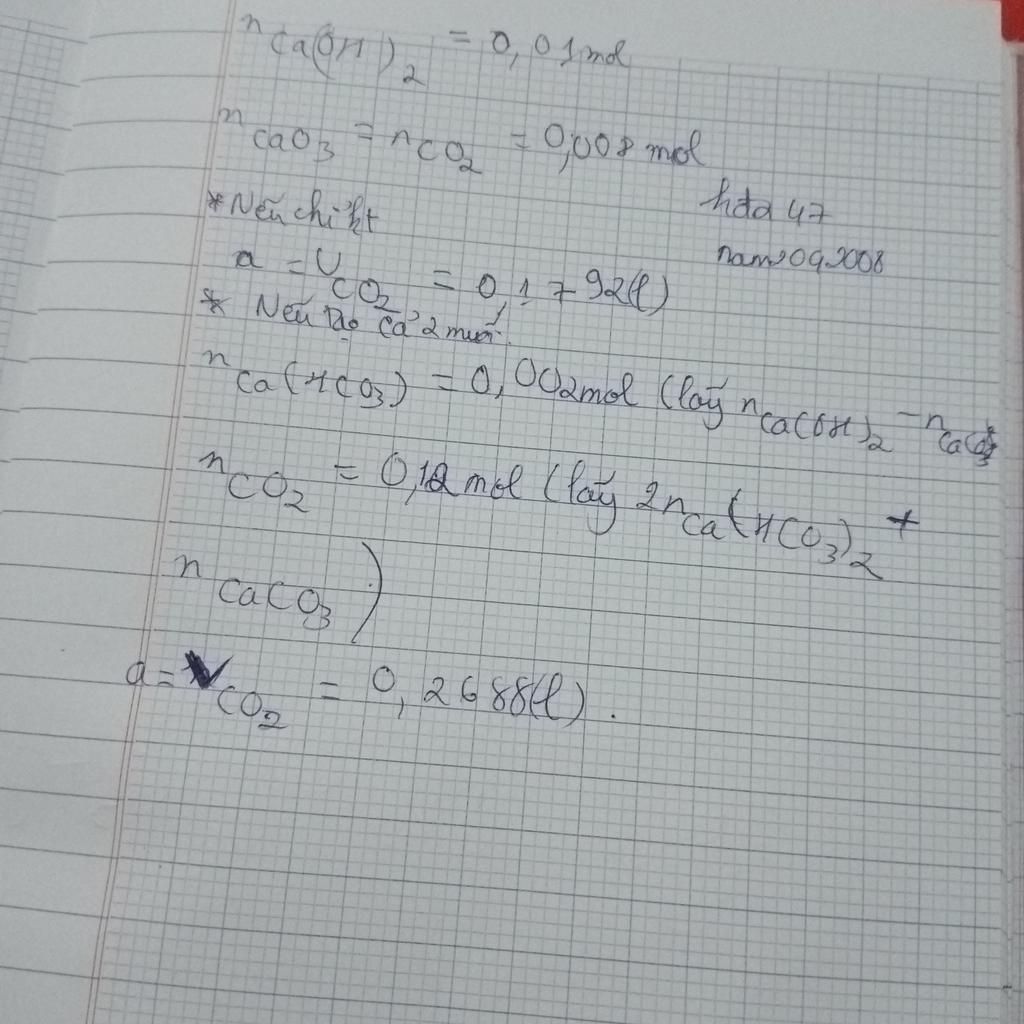 nCa(OH)2 = 0,01 mol
nCaO3 = nCO2 = 0,008 mol
* Nếu chỉ kt
hda 47
nam2092008
a = VCO2 = 0,1792(l)
* Nếu tạo cả 2 muối.
nCa(HCO3) = 0,002mol (lấy nCa(OH)2 - nCaCO3
nCO2 = 0,12 mol (lấy 2nCa(HCO3)2 +
nCaCO3)
a = VCO2 = 0,2688(l).